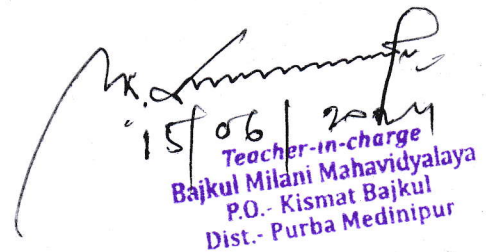 15/06/2024
Teacher-in-charge
Bajkul Milani Mahavidyalaya
P.O.- Kismat Bajkul
Dist.- Purba Medinipur